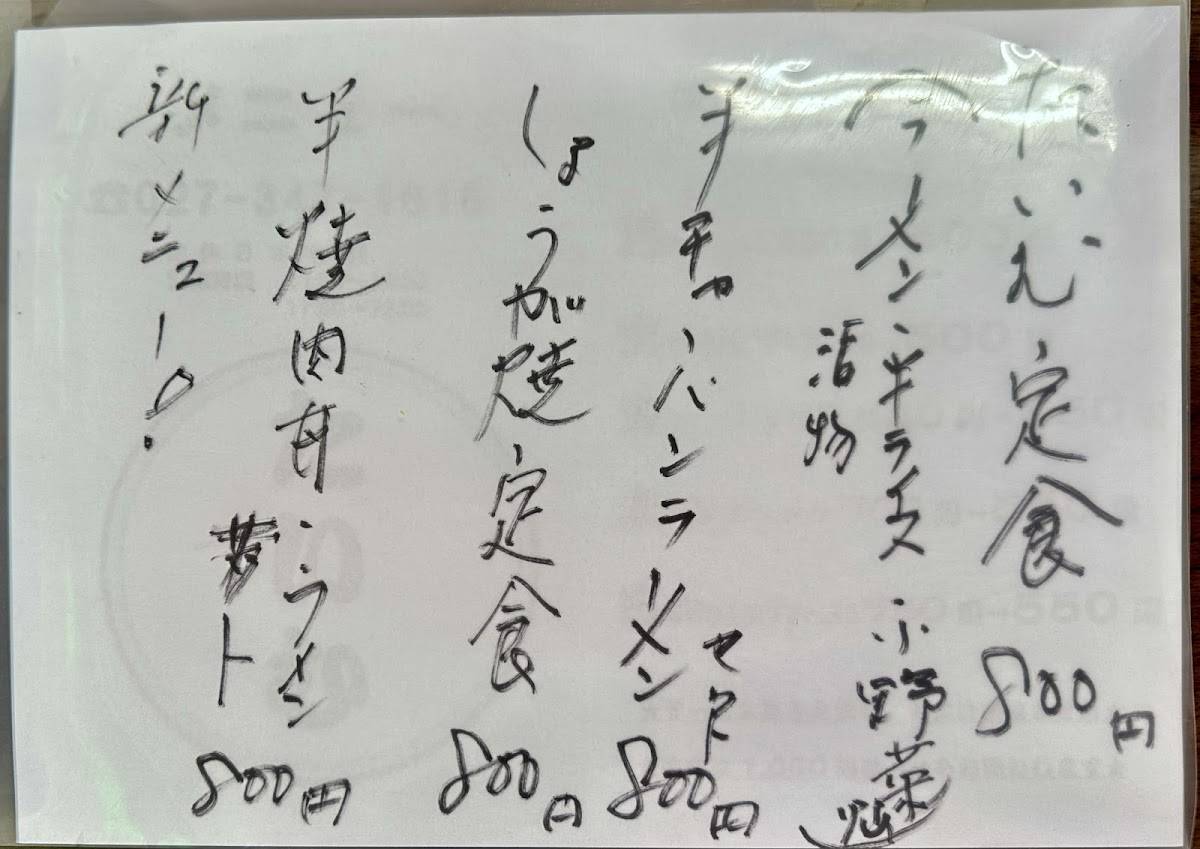 だいえ定食 800円
(ラーメン・半ライス 小野菜炒)
漬物
半チャーハンラーメン セット 800円
しょうが焼定食 800円
半焼肉丼・ラーメン
800円
新メニュー!